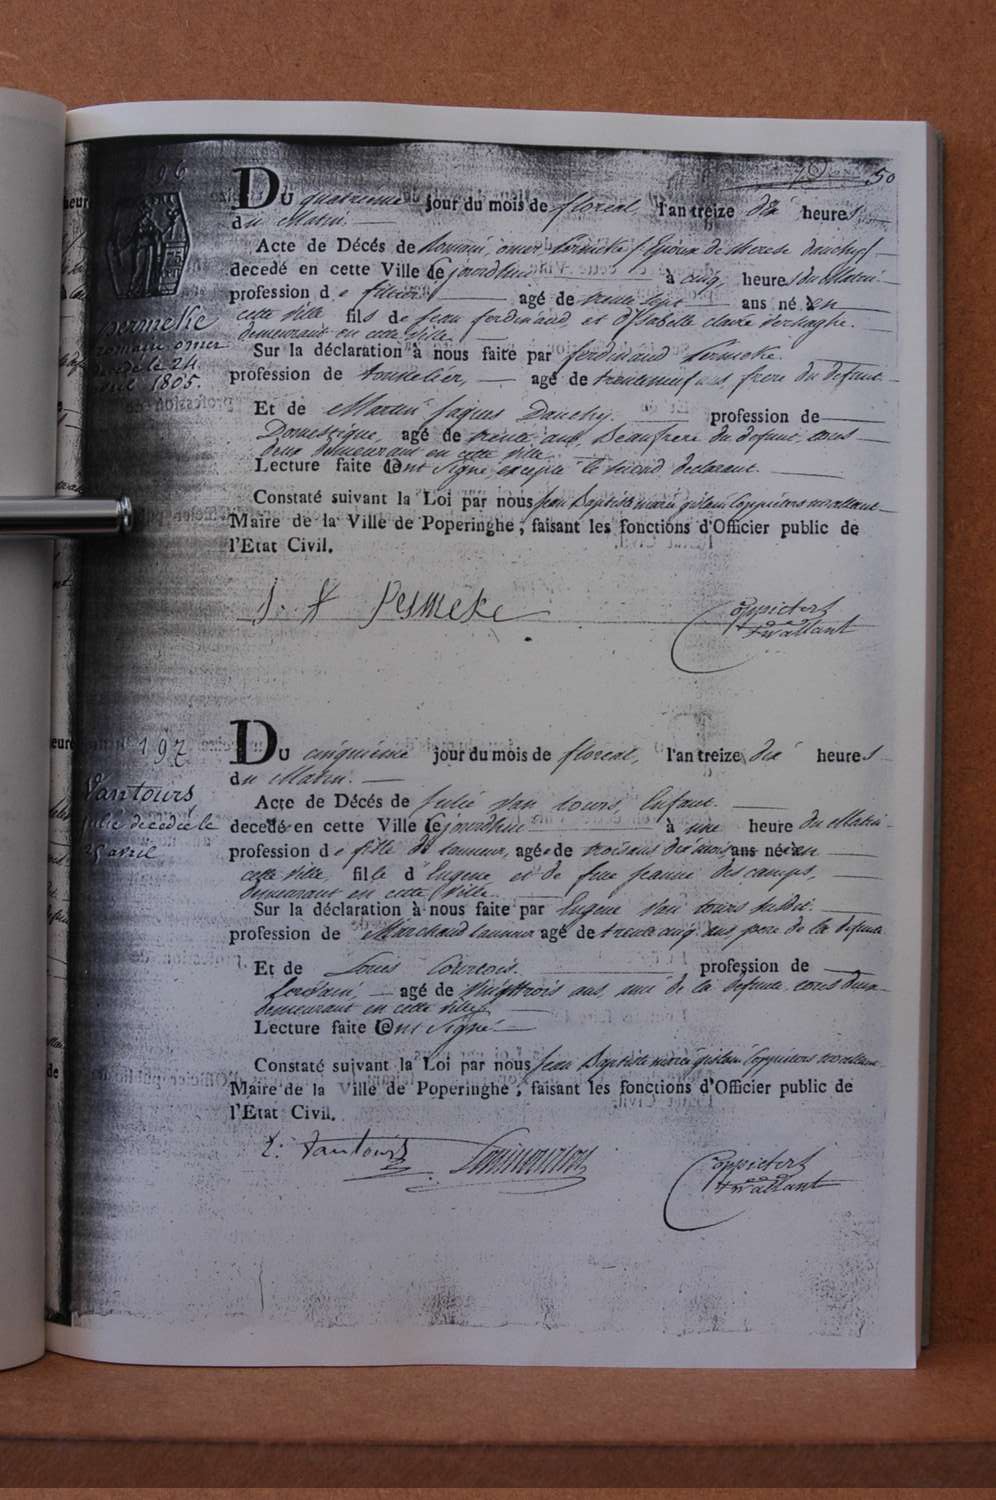 196
50
Du quatrieme jour du mois de floreal, l'an treize dix heures
du Matin.
Acte de Décés de Romain, omer, Permeke, Epoux de Therese Dauchy
decedé en cette Ville cejourdhui à cinq heures du Matin
profession de filtier agé de trente sept ans né en
cette ville fils de Jean ferdinand, et d'Isabelle claire Veringhe.
demeurant en cette ville.
permeke
romain omer
decedé le 24
avril 1805.
Sur la déclaration à nous faite par ferdinand Permeke.
profession de tonnelier, agé de trenteneuf ans frere du defunt
Et de Martin Jaques Dauchy. profession de
Domestique, agé de trente ans, Beaufrere du defunt, tous
deux demeurant en cette ville
Lecture faite Ont Signé, excepté le second declarant.
Constaté suivant la Loi par nous Jean Baptiste marie gislain Coppieters
Maire de la Ville de Poperinghe, faisant les fonctions d'Officier public de
l'Etat Civil.
J. F Permeke
Coppieters
197
Du cinquieme jour du mois de floreal, l'an treize dix heures
du Matin.
Vantours
julie decedée le
25 avril
Acte de Décés de Julie Van tours, Enfant.
decedé en cette Ville cejourdhui à une heure du Matin
profession de fille de tanneur, agé de trois ans dix mois, ans né en
cette ville, fille d Eugene et de feue jeanne des camps,
demeurant en cette Ville.
Sur la déclaration à nous faite par Eugene Van tours susdit.
profession de Marchand tanneur agé de trente cinq ans pere de la defunte
Et de Louis Courtois. profession de
agé de vingttrois ans, ami de la defunte, tous deux
demeurant en cette ville,
Lecture faite Ont Signé.
Constaté suivant la Loi par nous Jean Baptiste marie gislain Coppieters
Maire de la Ville de Poperinghe, faisant les fonctions d'Officier public de
l'Etat Civil.
E: Vantours
Coppieters